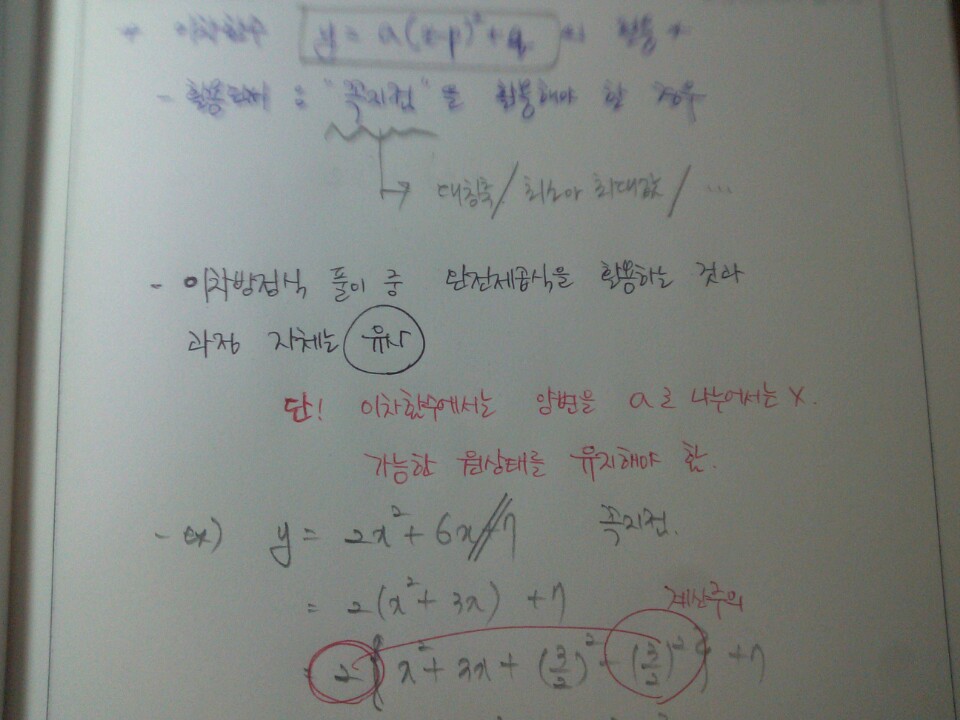 * 이차함수 y = a(x-p)²+q 의 활용 *
- 활용되어 : "꼭지점"을 활용해야 할 경우
대칭축/ 최소아 최대값/ ...
- 이차방정식 풀이 중 완전제곱식을 활용하는 것과
과정 자체는 유사
단! 이차함수에서는 양변을 a로 나누어서는 X.
가능한 원상태를 유지해야 함.
- ex) y = 2x²+6x//+7 꼭지점.
= 2(x²+3x) +7 계산주의
= 2{x²+3x+(3/2)²-(3/2)²} +7